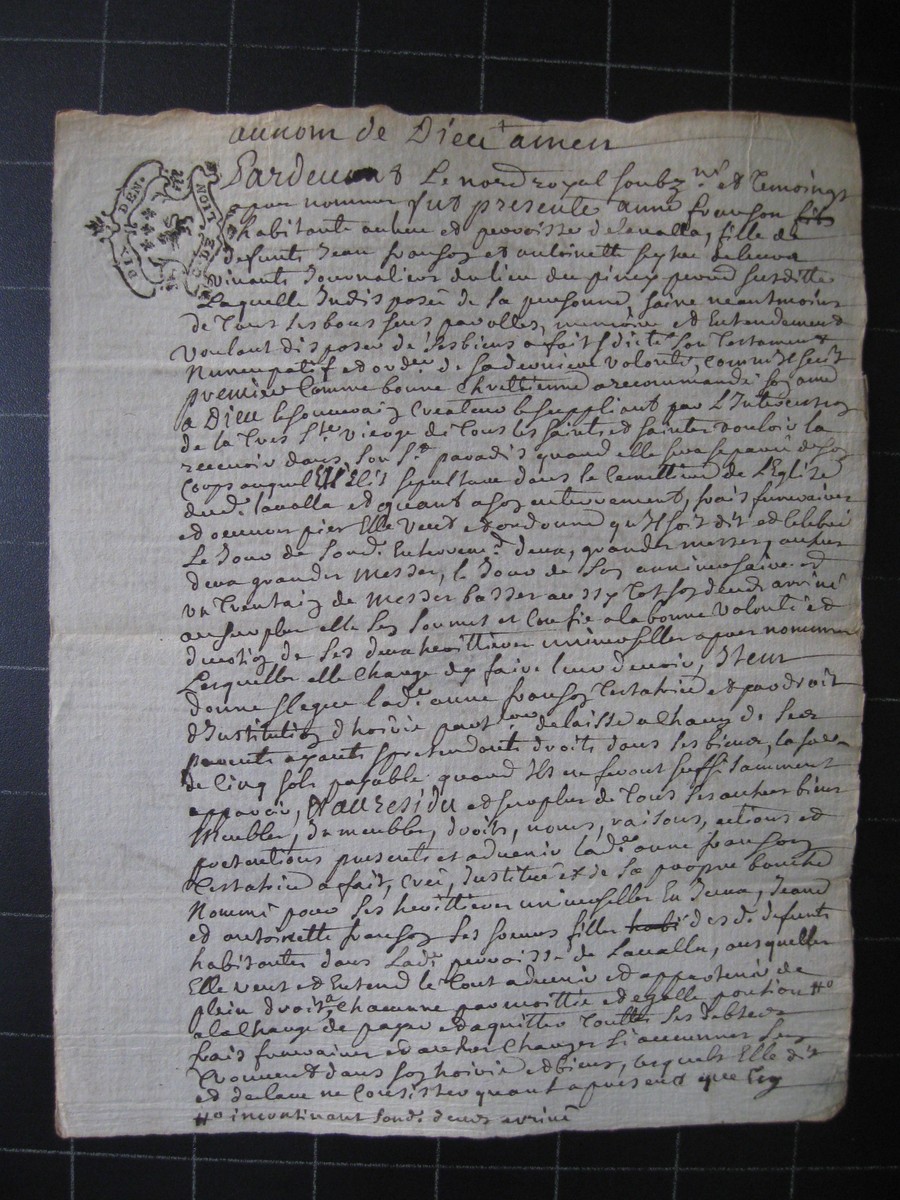 au nom de Dieu + amen
DIX DEN. NOIT. DES
Pardevant Le notre royal soubz.né et temoings
apres nommes fut presente anne franson
habitante au lieu et perroisse de lavalla, fille de
defunts Jean franson et antoinette de leur
vivants Journaliers du lieu du piney susditte
Laquelle Indisposée de sa personne, saine neantmoins
de Tous ses bons sens parolles, memoire et Entendement
voulant disposer de ses biens a fait & dicté son Testament
Nuncupatif et ordce de sa derniere volonté, comme s'ensuit
premier Comme bonne Chrettienne a recommandé son ame
a Dieu le souverain Createur le suppliant par L'Intercession
de la Tres Ste vierge de Tous les saints et saintes vouloir la
recevoir dans son St paradis quand elle sera separée de son
Corps auquel Ell'Elit sepulture dans le Cemettiere de L'Eglise
dud. lavalla et quant a son enterrement, frais funeraires
et oeuvres pies Elle veut et ordonne qu'Il soit dit et celebré
Le Jour de sond. Enterremt. deux grandes messes, autres
deux grandes messes, le Jour de son anniversaire et
un Trentain de messes basses aussy tot son deceds arrivé
au surplus elle s'en soumet et Confie a la bonne volonté et
devotion de ses deux heritieres universelles apres nommées
Lesquelles elle Charge d'en faire leur devoir, Item
donne & legue lade. anne franson Testatrice et par droit
d'Institution d'hoirie partre delaisse a Chacun de ses
parents ayants & pretendants droits dans ses biens, la somme
de Cinq sols payable quand Ils en seront suffisamment
apparoir, Et au residu et surplus de Tous ses autres biens
Meubles, Immeubles, droits, noms, raisons, actions et
pretentions presents et advenir lade. anne franson
Testatrice a fait, Creé, Institué et de sa propre bouche
Nommé pour ses heritieres universelles En Jeanne
et antoinette franson ses soeurs filles des d. defunts
habitantes dans lade. perroisse de Lavalla, ausquelles
Elle veut et Entend le Tout advenir et appartenir de
plein droit, a Chacune par moittie et egalle portion #o
a la Charge de payer et aquitter Touttes ses debtes
frais funeraires et autres Charges si aucunes se
Trouvent dans son hoirie et biens, lesquels Elle dit
et declare ne Consister quant a present que
#o incontinant sond. deceds arrivé